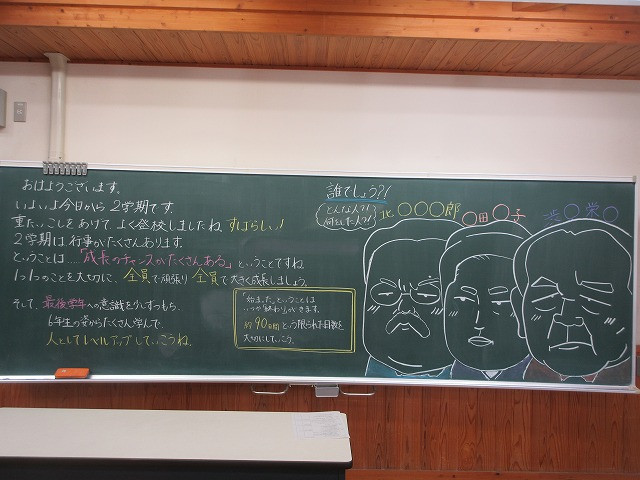 おはようございます。
いよいよ今日から2学期です。
重たいこしをあげて、よく登校しましたね。すばらしい!
2学期は行事がたくさんあります。
ということは…「成長のチャンスがたくさんある」ということですね。
1つ1つのことを大切に、全員で頑張り全員で大きく成長しましょう。
そして、最後学年への意識を少しずつもち、
6年生の姿からたくさん学んで、
人としてレベルアップしていこうね。
"始まった"ということは
いつか"終わり"がきます。
約90日間という限られた日数を
大切にしていこう。
誰でしょう?!
どんな人?!
何をした人?!
北〇〇〇郎
〇田〇子
渋〇栄〇